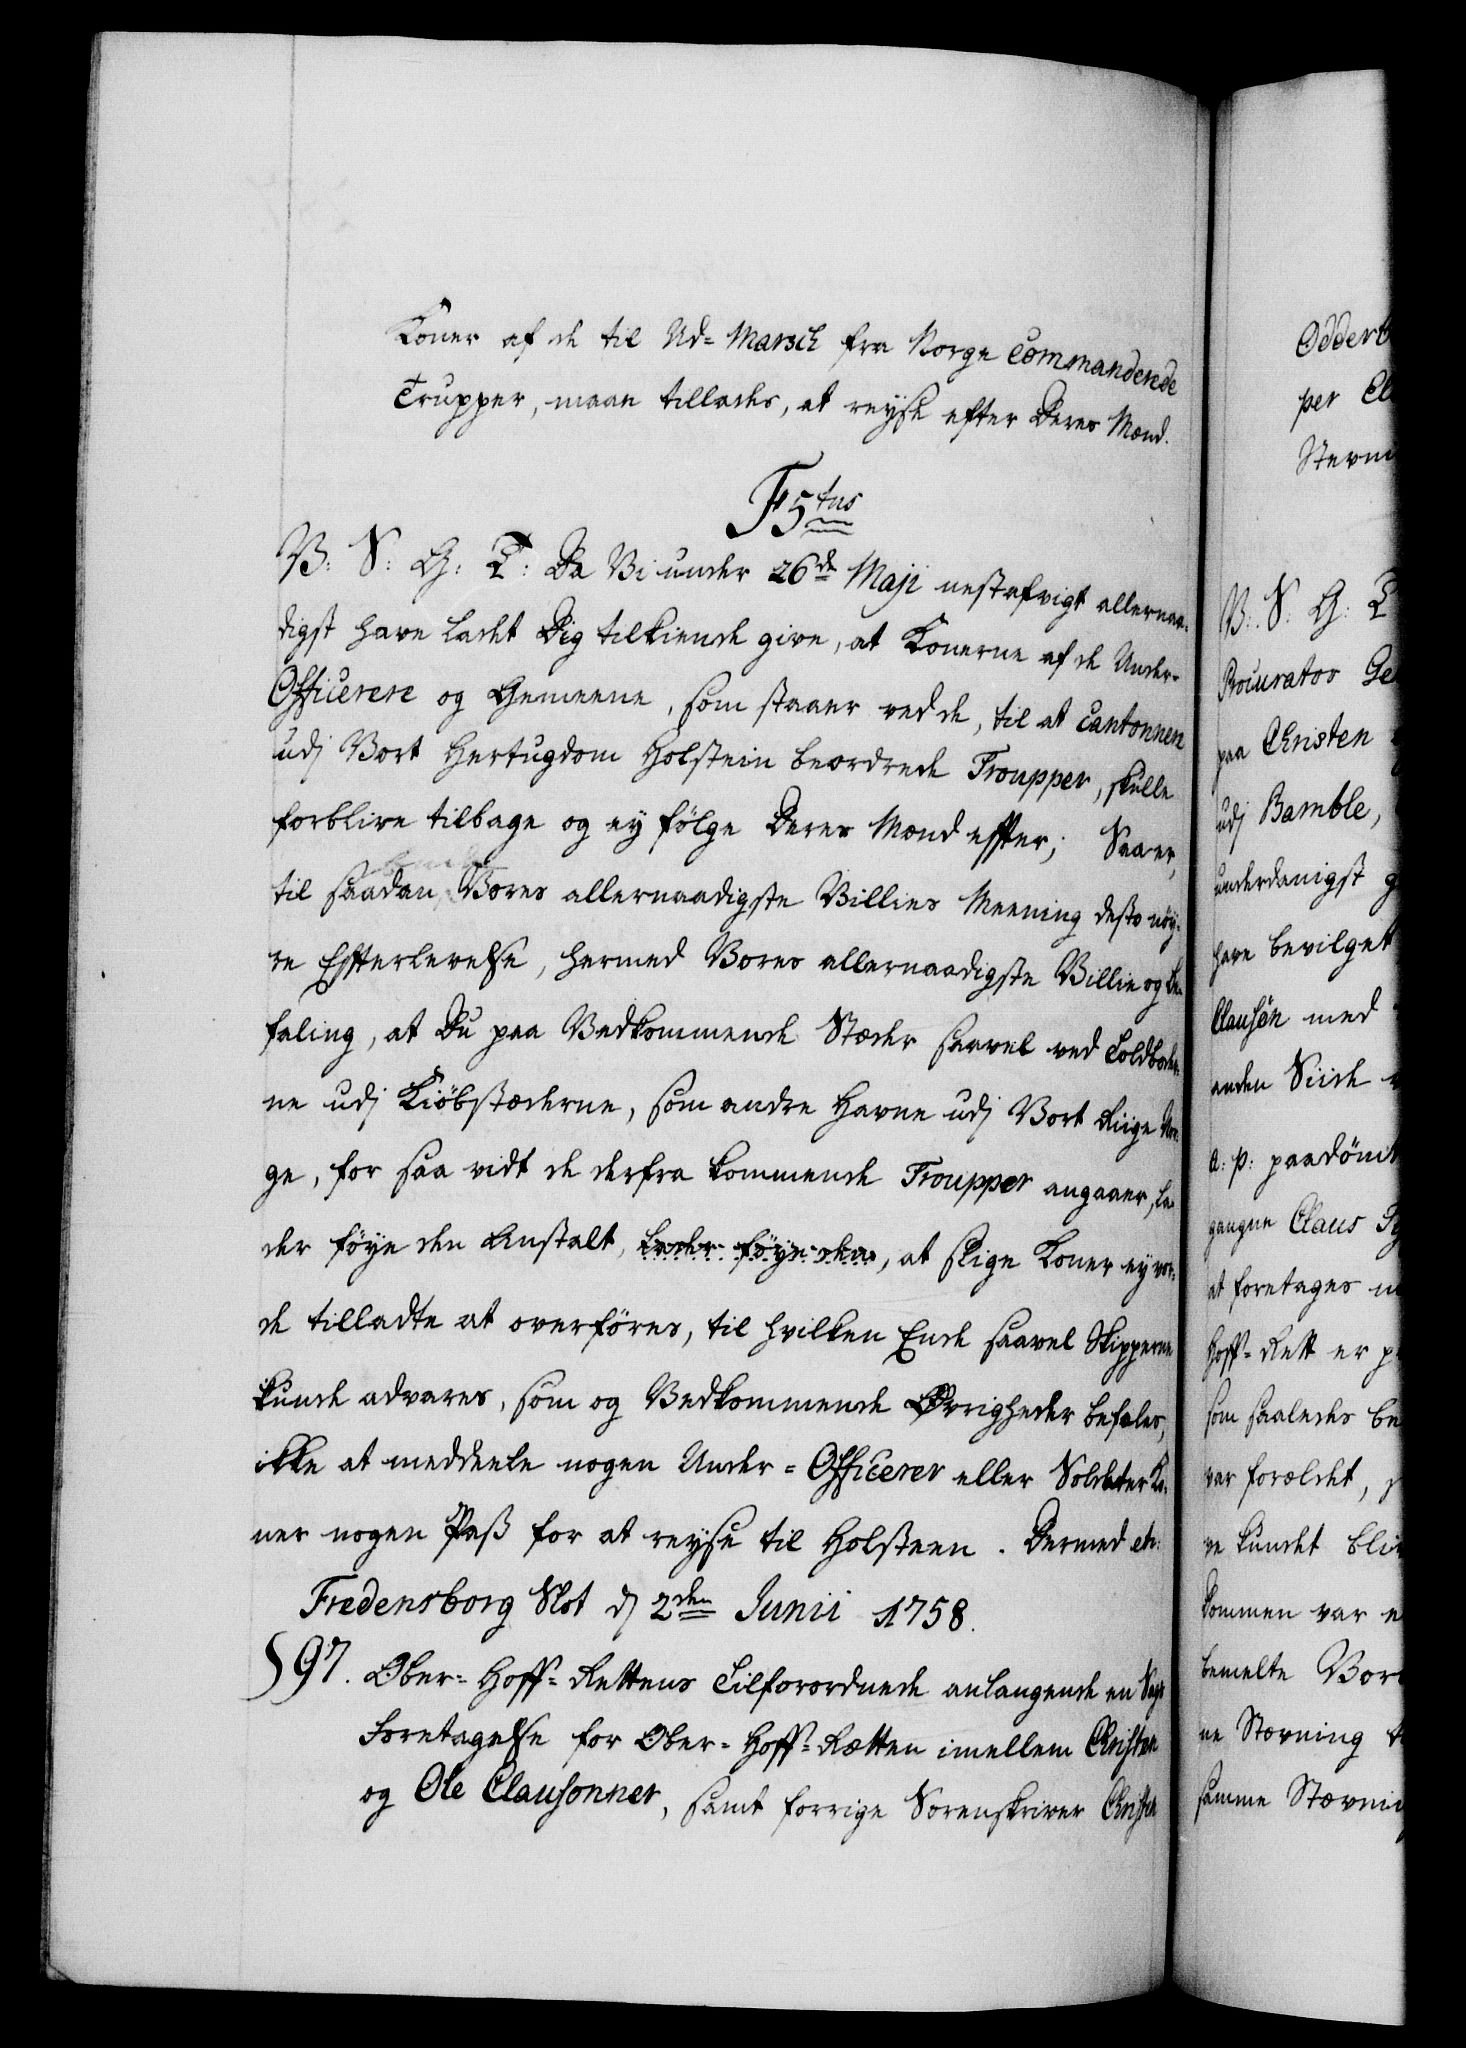 Koner af de til Ud= Marsch fra Norge Commanderede
Trupper, maae tillades, at reyse efter Deres Mænd.
F 5tus
V: S: G: T: Da Vi under 26de Maji nestafvigt allernaa-
digst have ladet Dig tilkiende give, at Konerne af de Under-
Officerere og Gemeene, som staaer ved de, til at cantonnere
udj Vort Hertugdom Holstein beordrede Troupper, skulle
forblive tilbage og ey følge Deres Mænd effter; Saa er,
til saadan Vores allernaadigste Villies Meening desto nøy-
re Effterlevelse, hermed Vores allernaadigste Villie og Be-
faling, at Du paa Vedkommende Stæder saavel ved Toldboder-
ne udj Kiöbstæderne, som andre Havne udj Vort Riige Nor-
ge, for saa vidt de derfra kommende Troupper angaaer, la-
der föye den Anstalt, lader föye den, at slige Koner ey vor-
de tilladte at overföres, til hvilken Ende saavel Skipperne
kunde advares, som og Vedkommende Øvrigheder befales,
ikke at meddeele nogen Under=Officerer eller Soldater Ko-
ner nogen Pass for at reyse til Holsteen. Dermed etc:
Fredensborg Slot d 2den Junii 1758.
§97. Ober=Hoff=Rettens Tilforordnede anlangende en Sags
Foretagelse for Ober=Hoff=Rætten imellem Christen
og Ole Clausønner, samt forrige Sorenskriver Christen
Odderb
per Cl
Stevni
V: S: G: T
Procurator Ge
paa Christen
udj Bamble,
underdanigst g
have bevilget
Clausön med
anden Siide
a: p: paadömt
gangne Claus
at foretages
Hoff=Rett er p
som saaledes be
var forældet,
ve kundet bli
kommen var e
bemelte Vor
ne Stævning
samme Stævnin